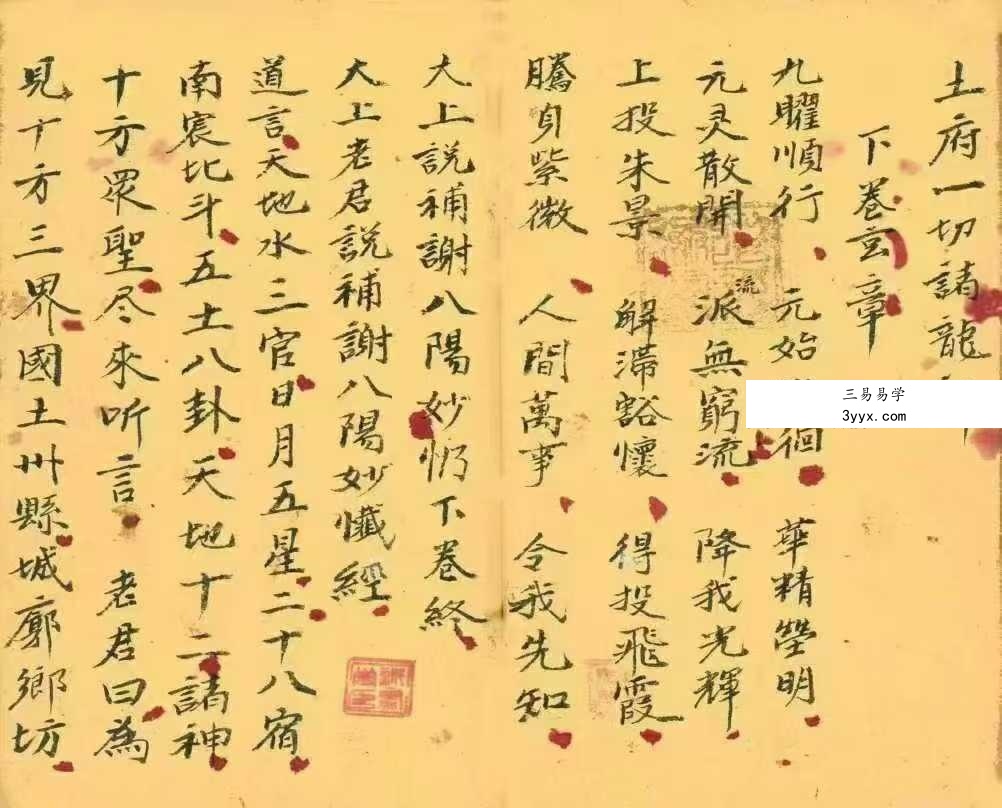 土府一切諸龍
下卷玄章
九曜順行 元始徊 華精瑩明
元灵散開 流派無窮流 降我光輝
上投朱景 解滯豁懷 得投飛霞
騰身紫微 人間萬事 令我先知
大上説補謝八陽妙忏下卷終
大上老君説補謝八陽妙懺經
道言天地水三官日月五星二十八宿
南宸北斗五土八卦天地十二諸神
十方眾聖尽來听言 老君曰為
見十方三界國土卅縣城廓鄉坊
三易易学
3yyx.com